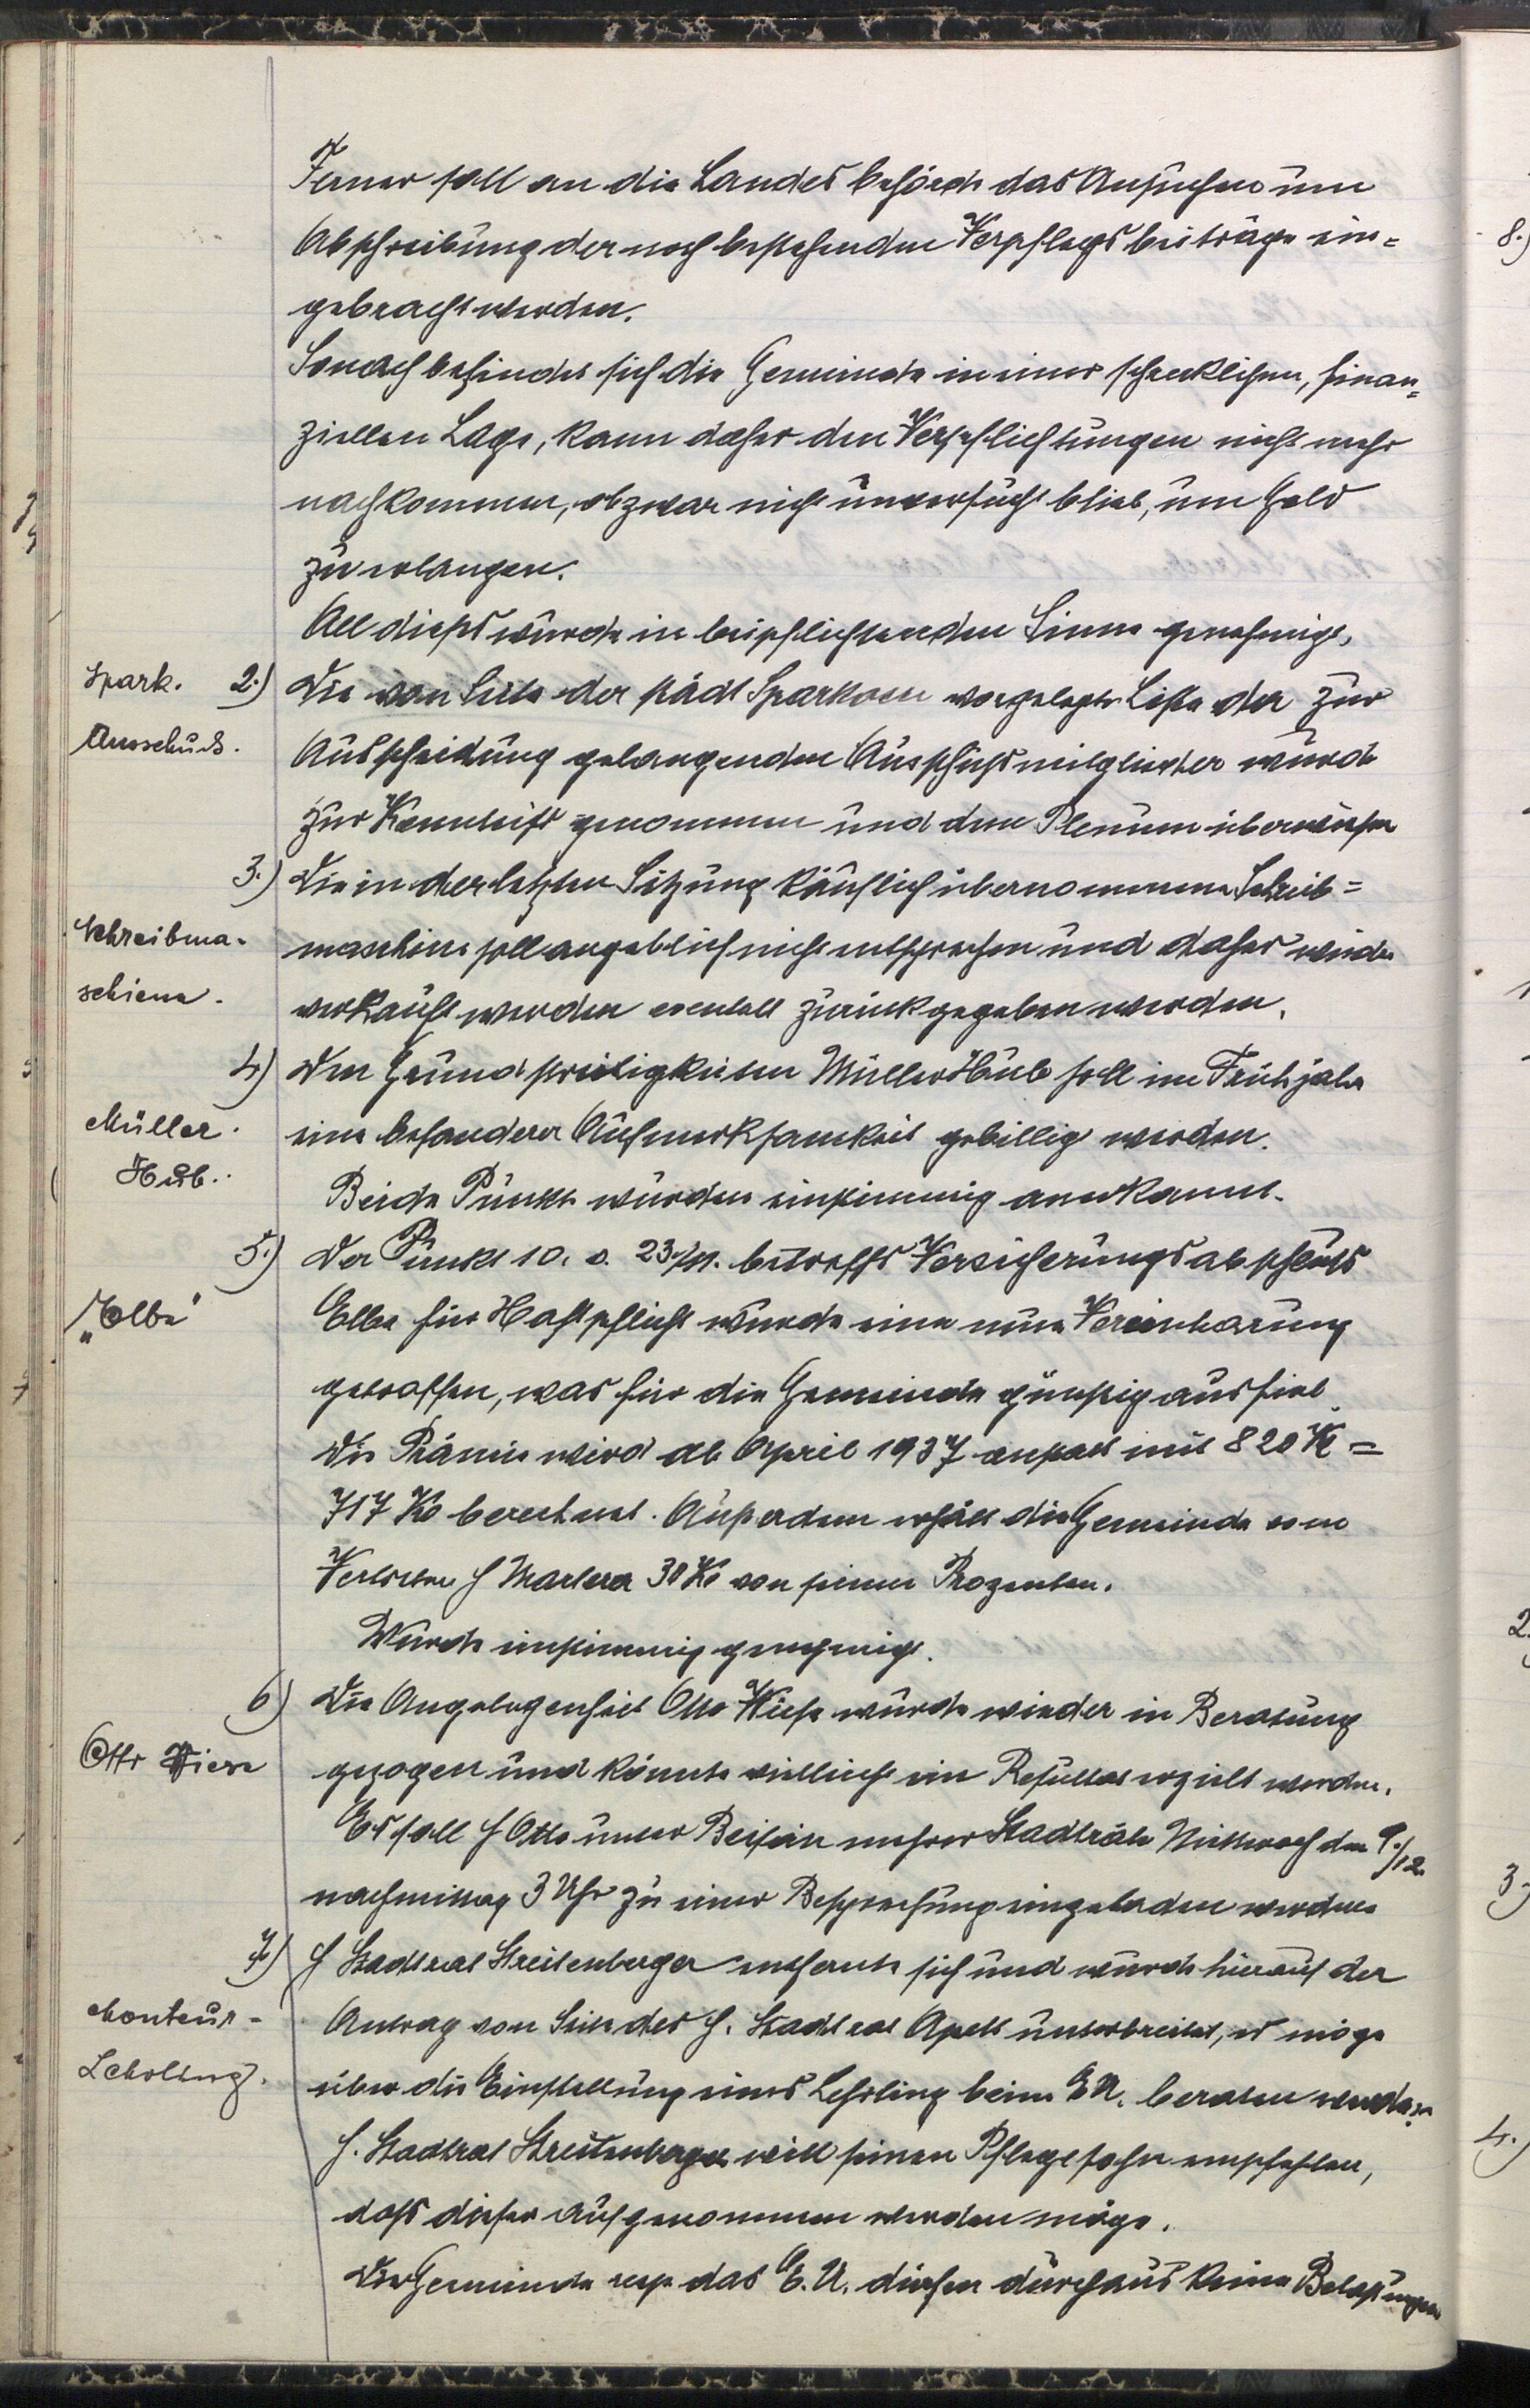 Ferner soll an die Landesbehörde das Ansuchen um
Abschreibung der noch bestehenden Verpflegsbeiträge ein=
gebracht werden.
Sonach befindet sich die Gemeinde in einer schrecklichen, finan=
ziellen Lage, kann daher den Verpflichtungen nicht mehr
nachkommen, obzwar nicht unversucht blieb, um Geld
zu erlangen.
All dieses wurde in beipflichtenden Sinne genehmigt.
Spark.
Ausschuss.
2.) Die von Seite der städt Sparkasse vorgelegte Liste der zur
Ausscheidung gelangenden Ausschussmitglieder wurde
zur Kenntnis genommen und dem Plenum überwiesen
Schreibma-
schiene.
3.) Die in der letzten Sitzung käuflich übernommene Schreib=
maschine soll angeblich nicht entsprechen und daher wieder
verkauft werden eventuell zurückgegeben werden.
Müller.
Hub.
4.) Den Grundstreitigkeiten Müller Hub soll im Frühjahr
eine besondere Aufmerksamkeit gebilligt werden.
Beide Punkte wurden einstimmig anerkannt.
„Elbe"
5.) Der Punkt 10. v. 23./11. betreffs Versicherungsabschluss
Elbe für Haftpflicht wurde eine neue Vereinbarung
getroffen, was für die Gemeinde günstig ausfiel.
Die Prämie wird ab April 1937 anstatt mit 820 Kč =
717 Kč berechnet. Ausserdem erhält die Gemeinde vom
Vertreter H 30 Kč von seinen Prozenten.
Wurde einstimmig genehmigt.
Otto Wiese
6) Die Angelegenheit Otto Wiese wurde wieder in Beratung
gezogen und könnte vielleicht ein Resultat erzielt werden.
Es soll H Otto unter Beisein mehrer Stadträte Mittwoch den 9./12.
nachmittag 3 Uhr zu einer Besprechung eingeladen werden
Monteur-
Lehrling.
7) H Stadtrat Streitenberger entfernte sich und wurde hierauf der
Antrag von Seite des H. Stadtrat Apelt unterbreitet, es möge
über die Einstellung eines Lehrling beim E.U. beraten werden.
H. Stadtrat Streitenberger will seinen Pflegesohn empfehlen,
dass dieser aufgenommen werden möge.
Der Gemeinde resp das E.U. dürfen durchaus keine Belastungen
8.)
2.
3.)
4.)